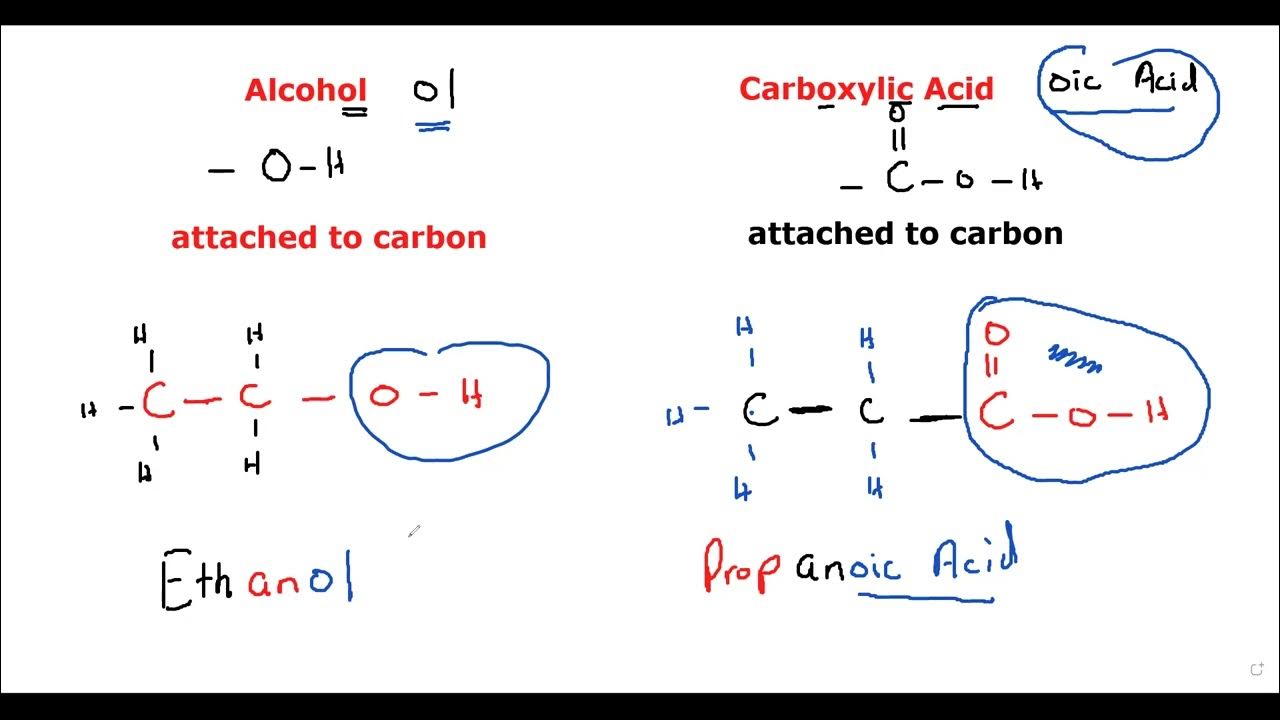 Alcohol ol
- O-H
attached to carbon
H H
H -C - C - O - H
H H
Ethanol
Carboxylic Acid oic Acid
O
||
- C - O - H
attached to carbon
H H O
||
H - C - C - C - O - H
H H
Propanoic Acid